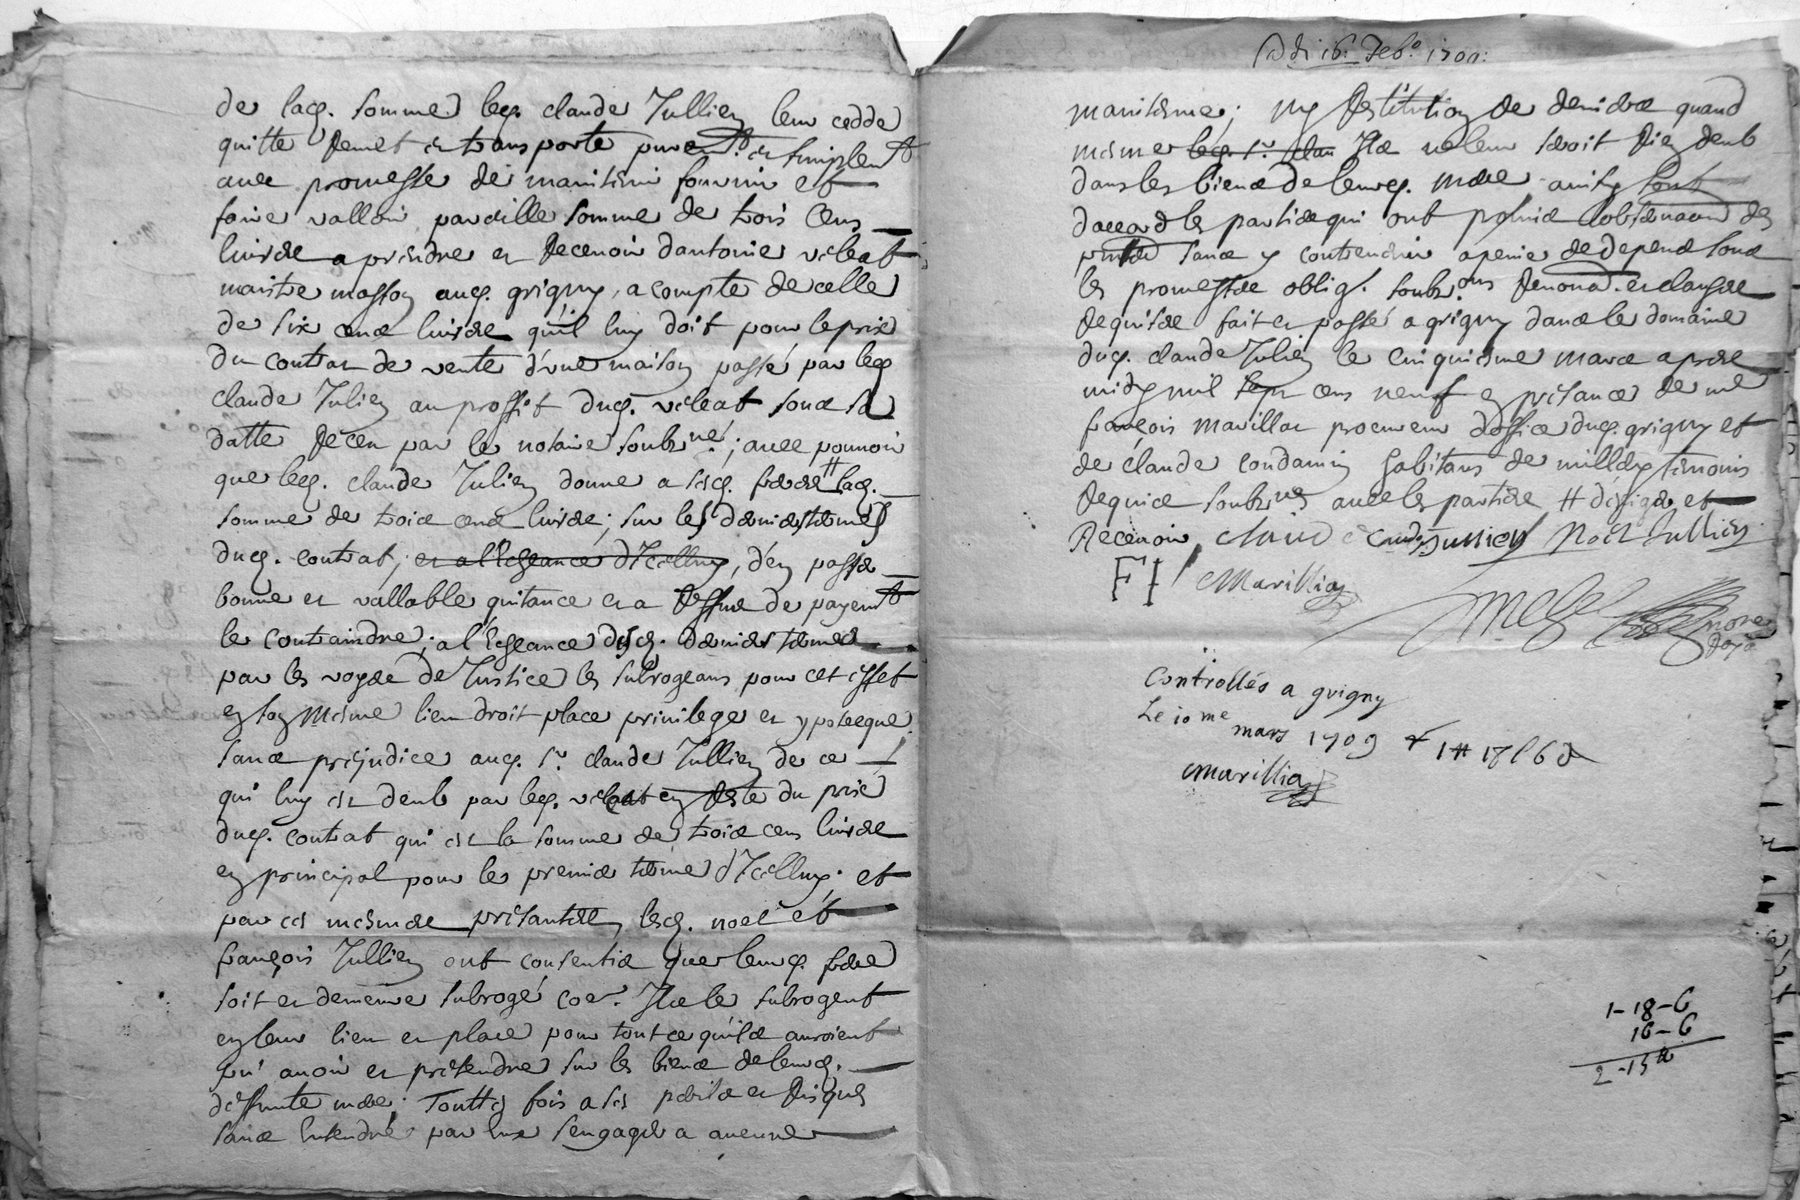 de laq. somme leq. claude Jullien leur cedde
quitte Remet et transporte purem.t et simplem.t
avec promesse de maintenir fournir et
faire valloir pareille somme de trois Cens
livres a prendre et Recevoir dantoine
maitre masson auq. grigny, a compte de celle
de six cens livres qu'il luy doit pour le prix
du contrat de vente d'une maison passé par leq
claude Julien au proffit duq. sous sa
datte Receu par le notaire soubz.né; avec pouvoir
que leq. claude Julien donne a sesq. freres # laq.
somme de trois cens livres; sur les derniers termes
duq. contrat; et a l'Echeance d'Icelluy, d'en passer
bonne et vallable quitance et a Reffus de payem.t
le contraindre; a l'Echeance desq. derniers termes
par les voyes de Justice les subrogeans pour cet effet
en son mesme lieu droit place privilege et ypoteque
sans prejudice auq. s.r claude Jullien de ce
qui luy est deub par leq. en reste du prix
duq. contrat qui est la somme de trois cens livres
en principal pour le premier terme d'Icelluy; et
par ces mesmes presantes lesq. noel et
françois Jullien ont consentis que leurq. frere
soit et demeure subrogé coe. Ils le subrogent
en leur lieu et place pour tout ce qu'ils auroient
avoir et pretendre sur les biens de leurq.
deffunte mere; Touttes fois a ses perils et Risques
sans Entendre par eux s'engager a aucune
A di 16. Feb.o 1700:
maintenue; ny Restitution de deniers quand
mesme leq. s.r clau Il ne leur seroit Rien deub
dans les biens de leurq. mere ainsy sont
daccord les parties qui ont promis l'observaon des
pntes sans y contrevenir a peine de depens sous
les promesses oblig. soubz.ons Renond. et clauses
Requises fait et passé a grigny dans le domaine
duq. claude Julien le cinquiesme mars apres
midy mil sept cens neuf en presance de me
françois marillat procureur d'office duq. grigny et
de claude condamin habitans de millery temoins
Requis soubz.nes avec les parties # d'exiger et
Recevoir Jullien Noël Jullien
F I Marilliat
Controllés a grigny
Le 10me mars 1709
Marilliat
1-18-6
16-6
2-15